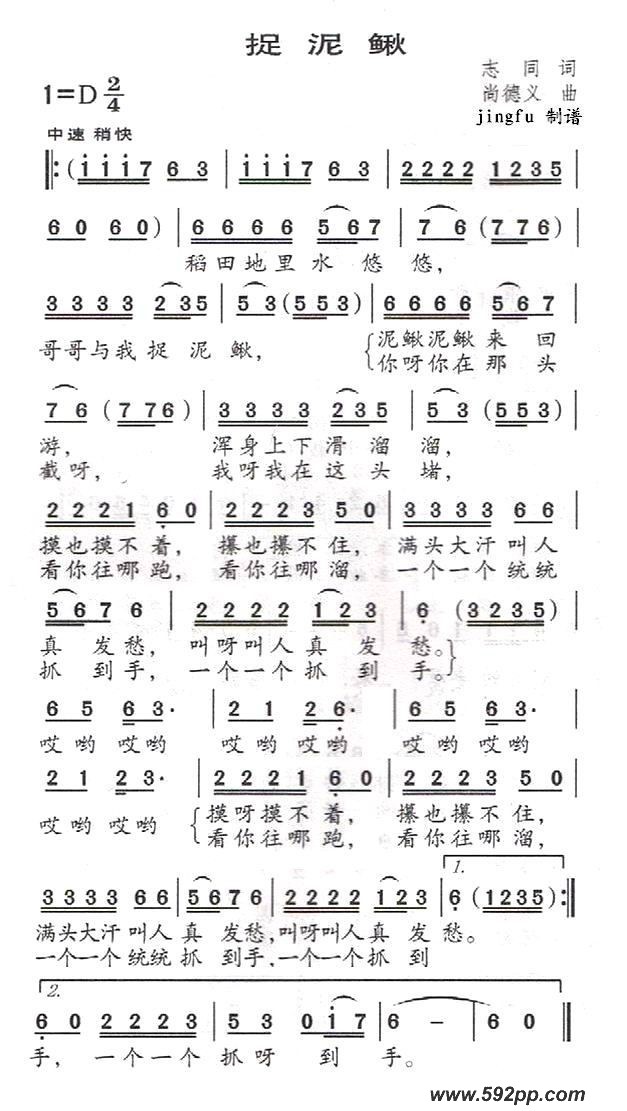 捉泥鳅
志同词
1=D 2/4
尚德义 曲
jingfu 制谱
中速 稍快
‖:(i i i 7 6 3 | i i i 7 6 3 | 2 2 2 2 1 2 3 5 |
6 0 6 0) | 6 6 6 6 5 6 7 | 7 6 (7 7 6) |
稻田地里水悠悠,
3 3 3 3 2 3 5 | 5 3 (5 5 3) | 6 6 6 6 5 6 7 |
哥哥与我捉泥鳅, {泥鳅泥鳅来回
你呀你在那头
7 6 (7 7 6) | 3 3 3 3 2 3 5 | 5 3 (5 5 3) |
游, 浑身上下滑溜溜,
截呀, 我呀我在这头堵,
2 2 2 1 6 0 | 2 2 2 3 5 0 | 3 3 3 3 6 6 |
摸也摸不着, 攥也攥不住, 满头大汗叫人
看你往哪跑, 看你往哪溜, 一个一个统统
5 6 7 6 | 2 2 2 2 1 2 3 | 6 (3 2 3 5) |
真发愁, 叫呀叫人真发愁。}
抓到手, 一个一个抓到手。
6 5 6 3· | 2 1 2 6· | 6 5 6 3· |
哎哟哎哟 哎哟哎哟 哎哟哎哟
2 1 2 3· | 2 2 2 1 6 0 | 2 2 2 3 5 0 |
哎哟哎哟 {摸呀摸不着, 攥也攥不住,
看你往哪跑, 看你往哪溜,
1.
3 3 3 3 6 6 | 5 6 7 6 | 2 2 2 2 1 2 3 | 6 (1 2 3 5) :‖
满头大汗叫人真发愁,叫呀叫人真发愁。
一个一个统统抓到手,一个一个抓到
2.
6 0 2 2 2 3 | 5 3 0 i 7 | 6 – | 6 0 ‖
手, 一个一个抓呀到手。
www.592pp.com